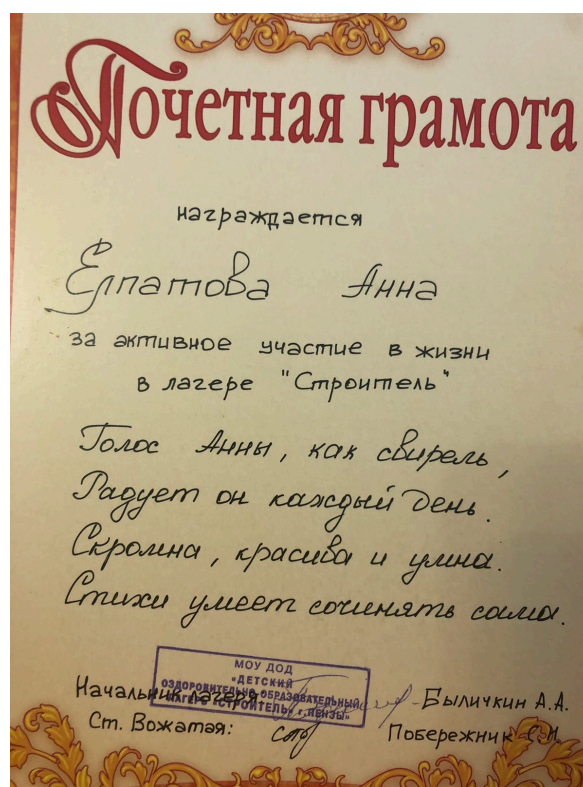 Почетная грамота
награждается
Елпатова Анна
за активное участие в жизни
в лагере "Строитель"
Голос Анны, как свирель,
Радует он каждый день.
Скромна, красива и умна.
Стихи умеет сочинять сама.
МОУ ДОД
«ДЕТСКИЙ
ОЗДОРОВИТЕЛЬНО-ОБРАЗОВАТЕЛЬНЫЙ
ЛАГЕРЬ «СТРОИТЕЛЬ» г. ПЕНЗЫ»
Начальник лагеря - Быличкин А.А.
Ст. Вожатая: Побережник С.Н.